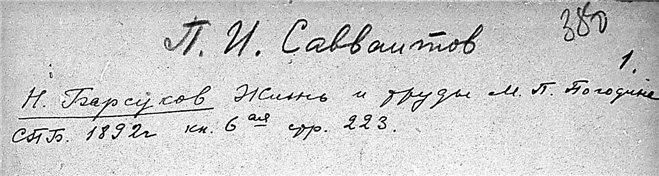 380
П. И. Савваитов
1.
Н. Барсуков Жизнь и труды М. П. Погодина
СПБ. 1892г кн. 6ая стр. 223.